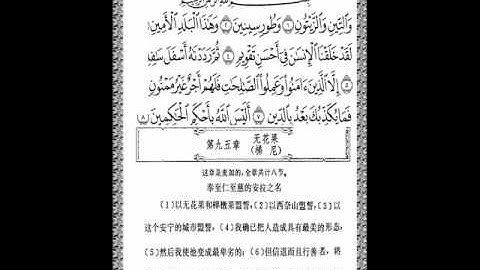 وَالتِّينِ وَالزَّيْتُونِ ١ وَطُورِ سِينِينَ ٢ وَهَٰذَا الْبَلَدِ الْأَمِينِ
لَقَدْ خَلَقْنَا الْإِنسَانَ فِي أَحْسَنِ تَقْوِيمٍ ٤ ثُمَّ رَدَدْنَاهُ أَسْفَلَ سَافِلِ
٥ إِلَّا الَّذِينَ ءَامَنُوا وَعَمِلُوا الصَّالِحَاتِ فَلَهُمْ أَجْرٌ غَيْرُ مَمْنُونٍ
فَمَا يُكَذِّبُكَ بَعْدُ بِالدِّينِ ٧ أَلَيْسَ اللَّهُ بِأَحْكَمِ الْحَاكِمِينَ ٨
第九五章 无花果
（梯尼）
这章是麦加的，全章共计八节。
奉至仁至慈的安拉之名
（1）以无花果和榟橄果盟誓，（2）以西奈山盟誓，（3）以
这个安宁的城市盟誓，（4）我确已把人造成具有最美的形态，
（5）然后我使他变成最卑劣的；（6）但信道而且行善者，将